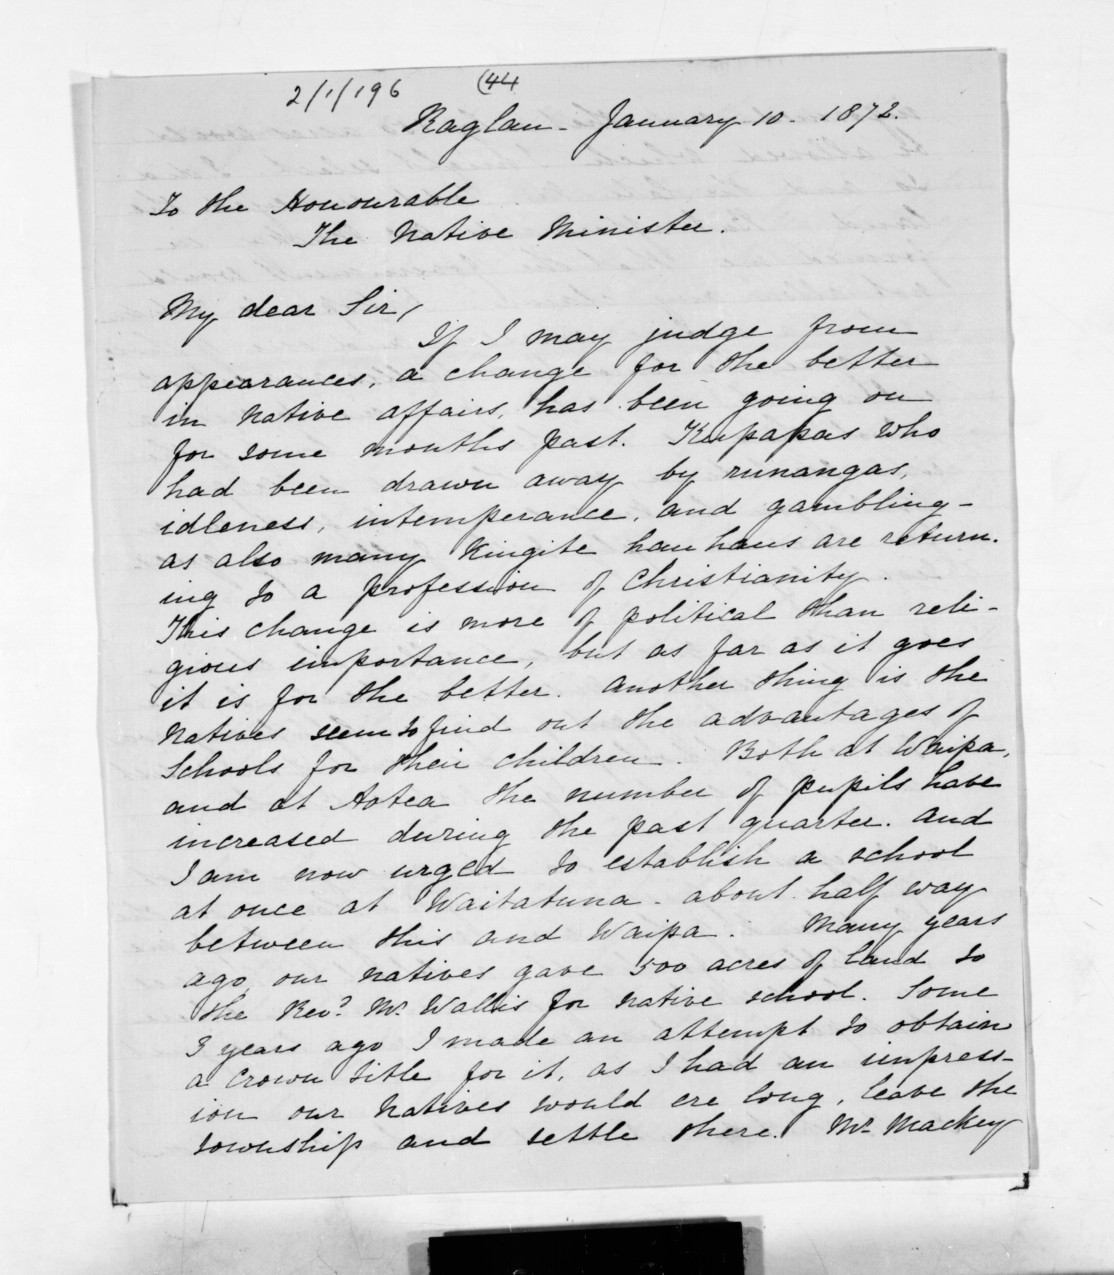 2/1/196 (44
Raglan - January 10 - 1872.
To the Honourable
The Native Minister.
My dear Sir,
If I may judge from
appearances, a change for the better
in native affairs, has been going on
for some months past. Kupapas who
had been drawn away by runangas,
idleness, intemperance, and gambling -
as also many Kingite hauhaus are return.
ing to a profession of Christianity.
This change is more of political than reli-
gious importance, but as far as it goes
it is for the better. Another thing is the
Natives seem to find out the advantages of
Schools for their children. Both at Waipa,
and at Aotea the number of pupils have
increased during the past quarter. And
I am now urged to establish a school
at once at Waitatuna - about half way
between this and Waipa. Many years
ago our natives gave 500 acres of land to
the Revd. Mr Wallis for native school. Some
3 years ago I made an attempt to obtain
a Crown title for it, as I had an impress-
ion our Natives would ere long, leave the
township and settle there. Mr Mackey